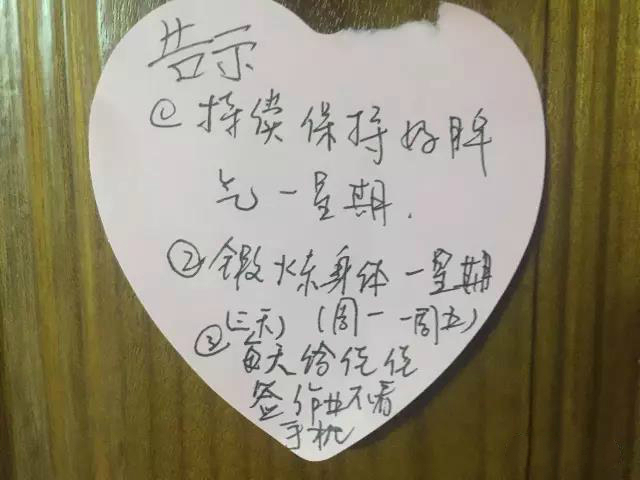 告示
① 持续保持好脾
气一星期.
② 锻炼身体一星期
(三天) (周一—周五)
③ 每天给仡仡
签作业不看
手机